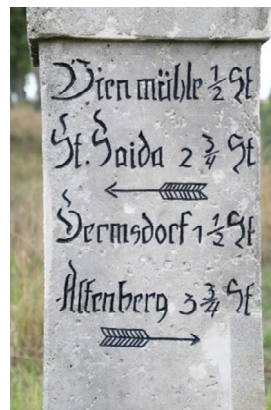 Bien mühle ½ St
St. Saida 2 ¾ St
Hermsdorf 1 ½ St
Altenberg 3 ¾ St